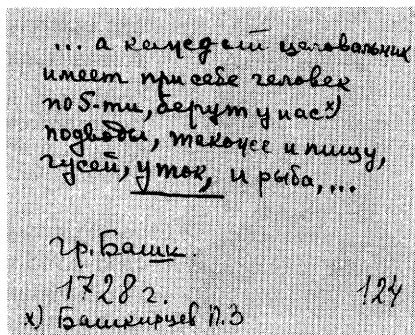 ... а каждый целовальник
имеет при себе человек
по 5-ти, берут у нас х)
подводы, також и пищу,
гусей, уток, и рыба, ...
гр. Башк.
1728 г. 124
х) Башкирцев П.З